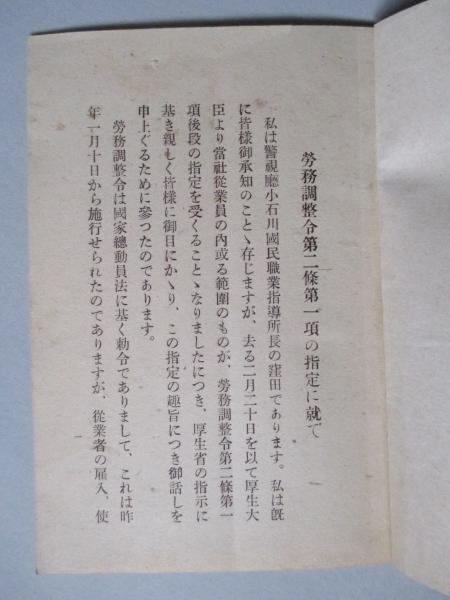 勞務調整令第二條第一項の指定に就て
私は警視廳小石川國民職業指導所長の窪田であります。私は旣
に皆樣御承知のことゝ存じますが、去る二月二十日を以て厚生大
臣より當社從業員の內或る範圍のものが、勞務調整令第二條第一
項後段の指定を受くることゝなりましたにつき、厚生省の指示に
基き親しく皆樣に御目にかゝり、この指定の趣旨につき御話しを
申上ぐるために參つたのであります。
勞務調整令は國家總動員法に基く勅令でありまして、これは昨
年一月十日から施行せられたのでありますが、從業者の雇入、使